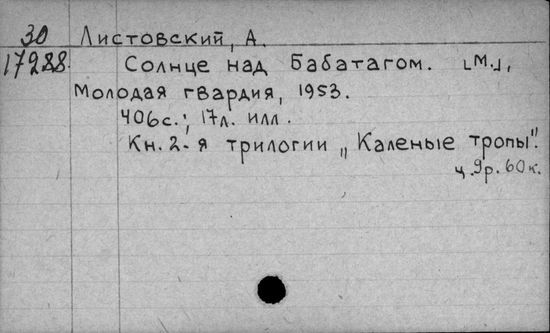 30 Листовский, А.
17288 Солнце над Бабатагом. [М.],
Молодая гвардия, 1953.
406с.; 17л. илл.
Кн. 2-я трилогии „Каленые тропы".
ц. 9р. 60к.